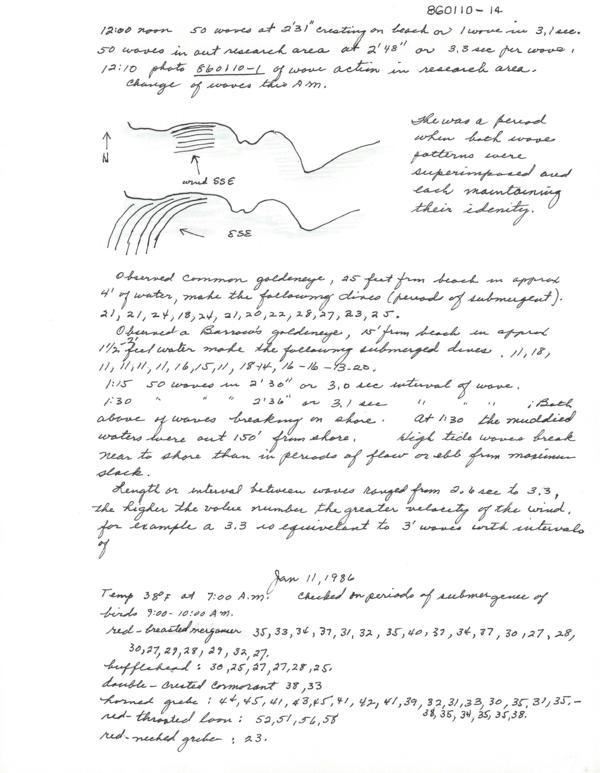 860110-14
12:00 noon 50 waves at 2'31" cresting on beach or 1 wave in 3.1 sec.
50 waves in out research area at 2'48" or 3.3 sec per wave.
12:10 photo 860110-1 of wave action in research area.
Change of waves this A.M.
The was a period
when both wave
patterns were
superimposed and
each maintaining
their idenity.
N
wind SSE
SSE
Observed common goldeneye, 25 feet from beach in approx
4' of water, make the following dives (period of submergent).
21, 21, 24, 18, 24, 21, 20, 22, 28, 27, 23, 25.
Observed a Barrow's goldeneye, 15' from beach in approx
1 1/2-2' feet water make the following submerged dives. 11, 18,
11, 11, 11, 11, 16, 15, 11, 18-14, 16-16-13-20.
1:15 50 waves in 2'30" or 3.0 sec interval of wave.
1:30 " " " 2'36" or 3.1 sec " " " ; Both
above of waves breaking on shore. At 1:30 the muddied
waters were out 150' from shore. High tide waves break
near to shore than in periods of flow or ebb from maximum
slack.
Length or interval between waves ranged from 2.6 sec to 3.3,
the higher the value number the greater velocity of the wind.
for example a 3.3 is equivelant to 3' waves with intervals
of
Jan 11, 1986
Temp 38°F at 7:00 A.M. Checked on periods of submergence of
birds 9:00-10:00 A.M.
red-breasted merganser 35, 33, 34, 37, 31, 32, 35, 40, 37, 34, 37, 30, 27, 28,
30, 27, 29, 28, 29, 32, 27.
bufflehead: 30, 25, 27, 27, 28, 25.
double-crested cormorant 38, 33
horned grebe: 44, 45, 41, 43, 45, 41, 42, 41, 39, 32, 31, 33, 30, 35, 31, 35,-
38, 35, 34, 35, 35, 38.
red-throated loon: 52, 51, 56, 58
red-necked grebe: 23.